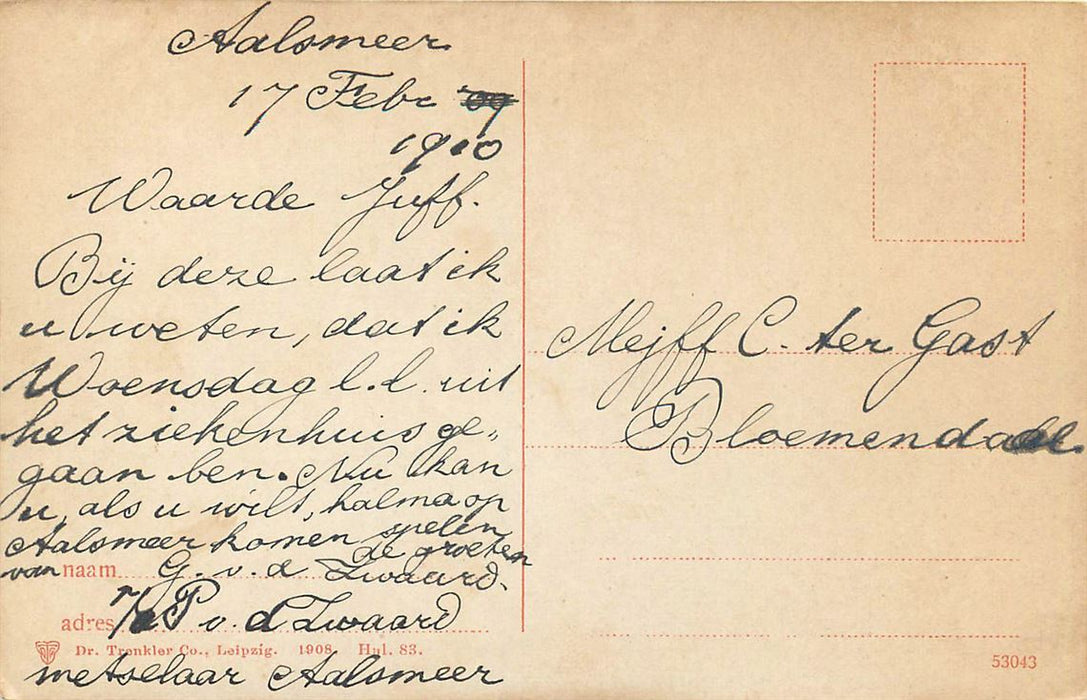 Aalsmeer
17 Febr 09
1910
Waarde Juff.
Bij deze laat ik
u weten, dat ik
Woensdag l.l. uit
het ziekenhuis ge„
gaan ben. Nu kan
u, als u wilt, halma op
Aalsmeer komen spelen
de groeten
van naam G. v. d Zwaard.
adres P v. d Zwaard
metselaar Aalsmeer
Dr. Trenkler Co., Leipzig. 1908. Hul. 83.
Mejff C. ter Gast
Bloemendaal.
53043